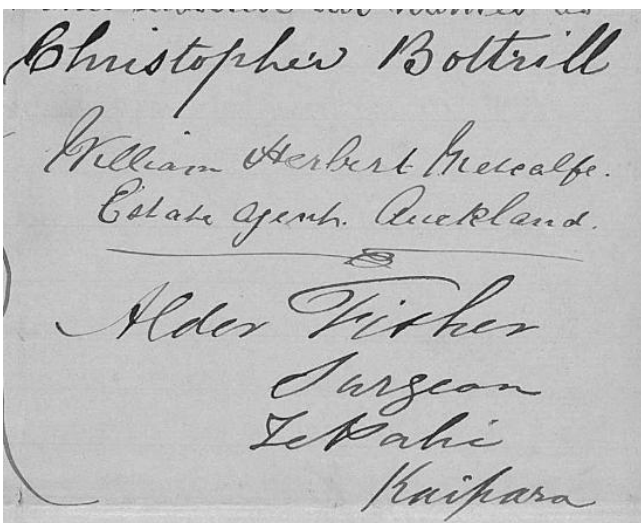 Christopher Bottrill
William Herbert Metcalfe.
Estate agent. Auckland.
Alder Fisher
Surgeon
Te Pahi
Kaipara